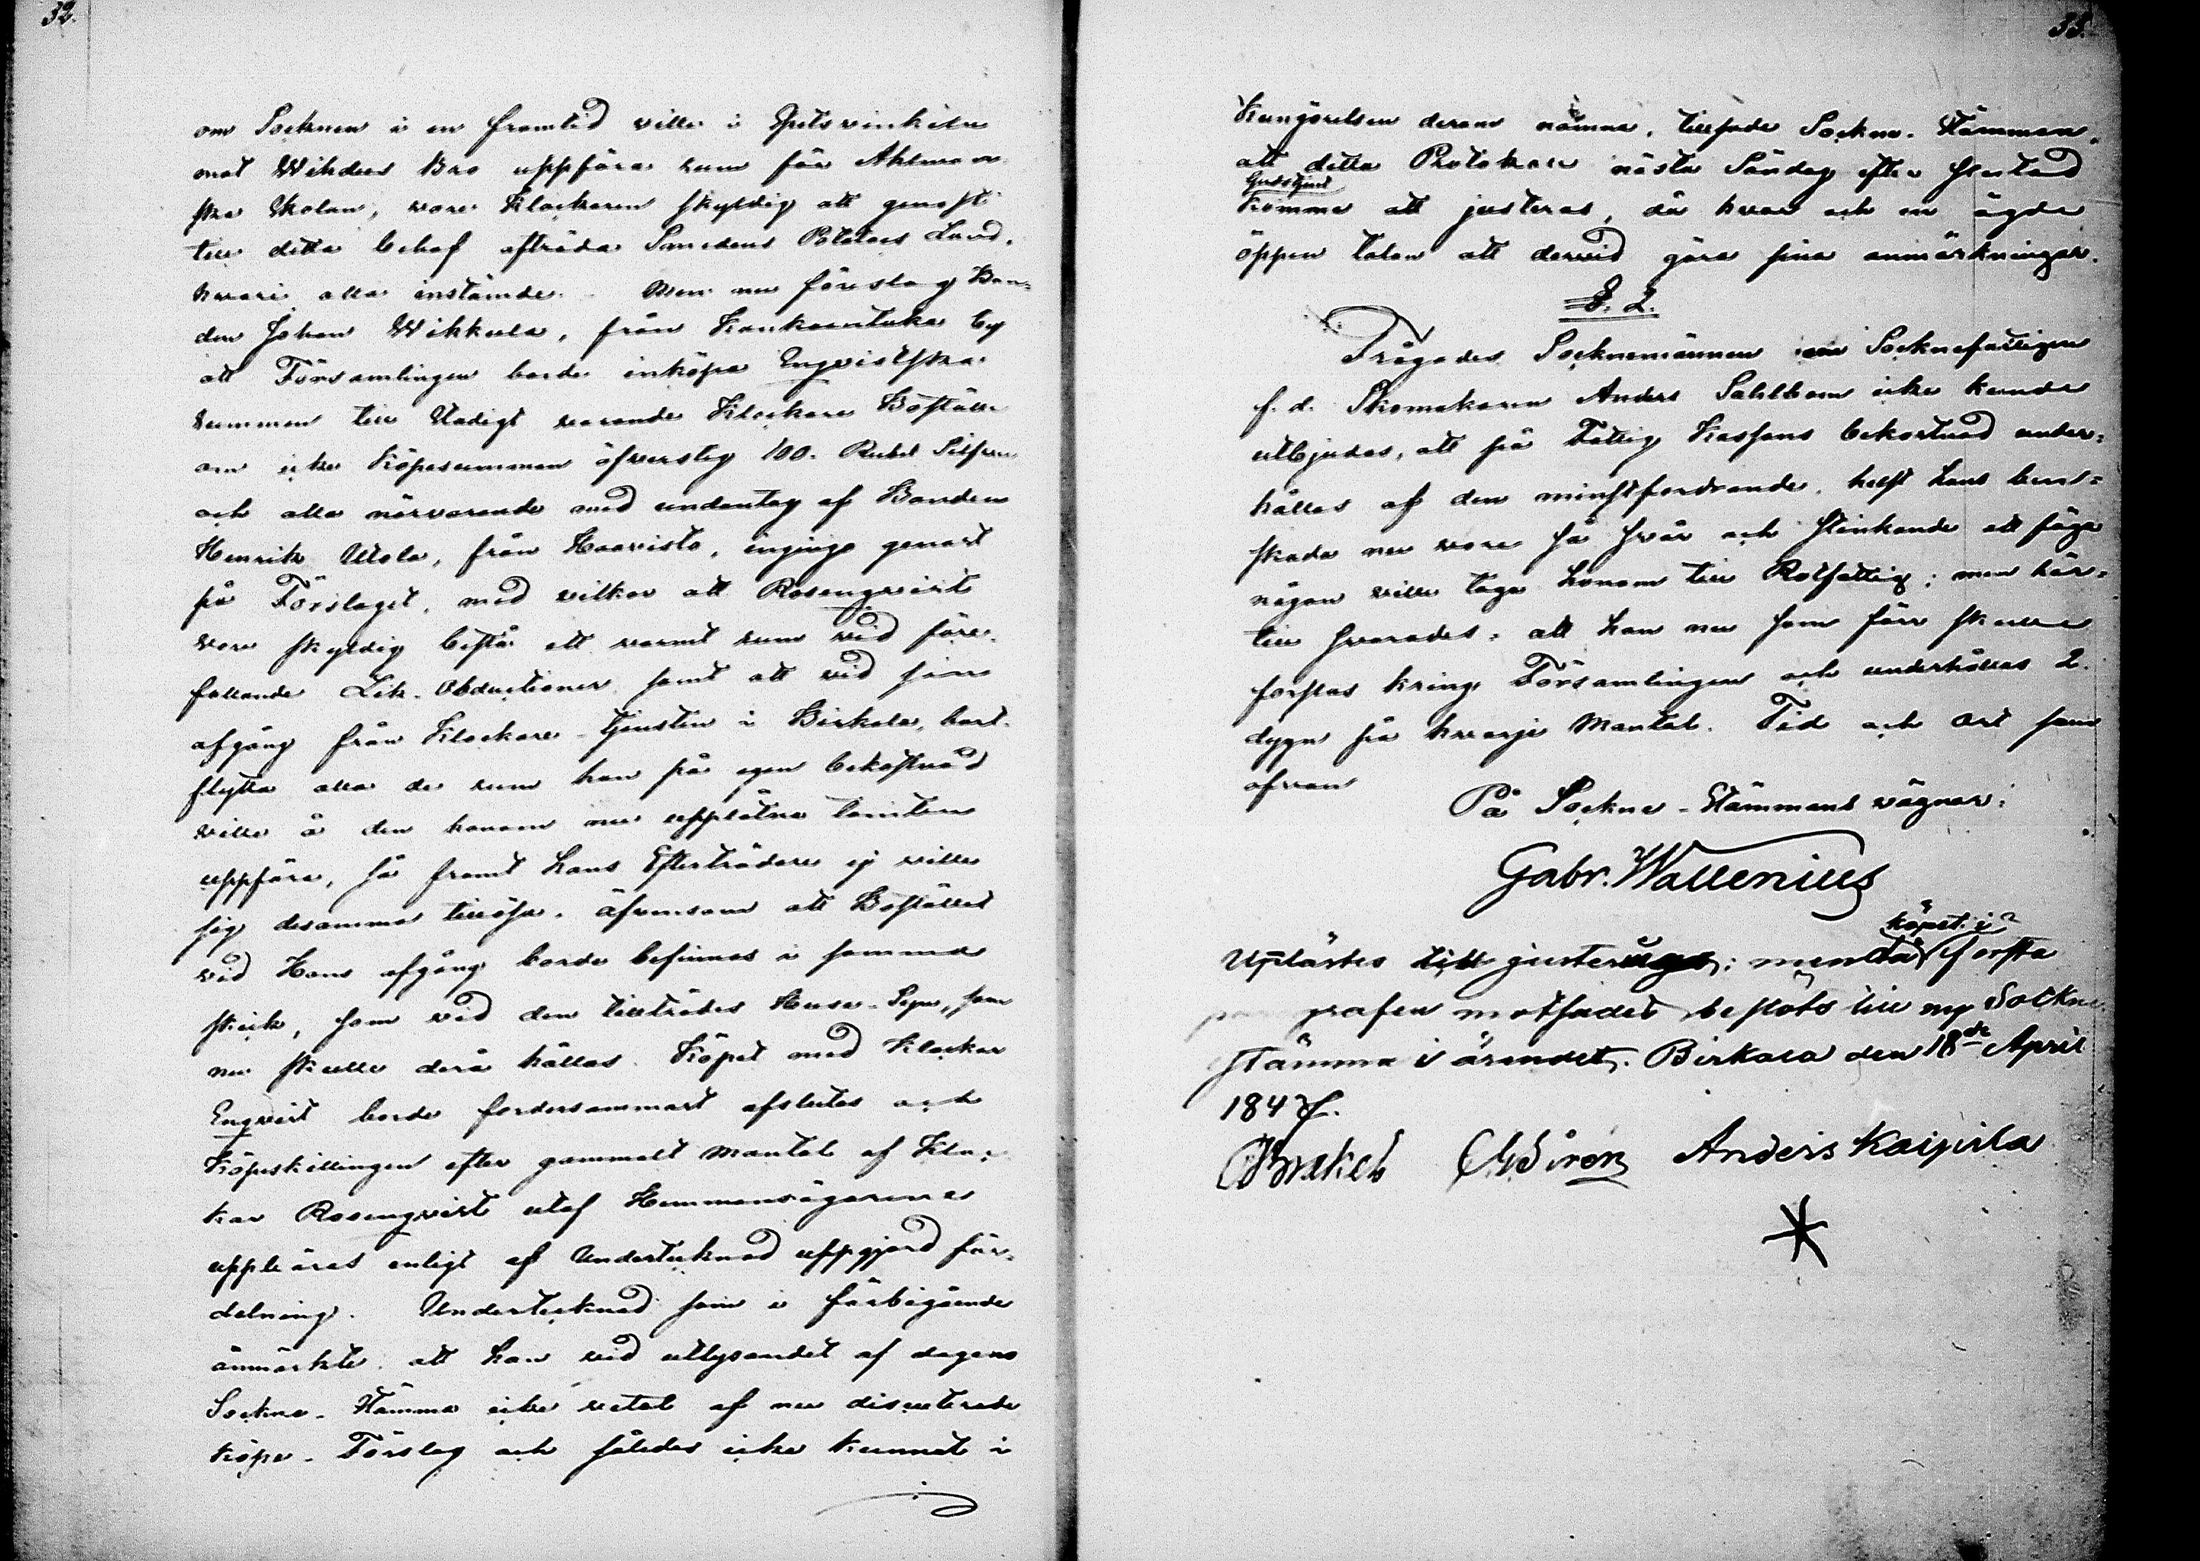 32.
om Socknen i en framtid ville i
mot Bro uppföra rum för Ahlman
ska Skolan, vore Klockaren skyldig att genast
till detta behof afträda Smedens Potatoes Land,
hvari alla instämde. Men nu föreslog Bon-
den Johan Wihkula, från by
att Församlingen borde inköpa Engvistska
rummen till Stadigt varande Klockare Boställe
om icke Köpesumman öfversteg 100. Rubel Silfver
och alla närvarande med undantag af Bonden
Henrik Utola, från Haavisto, ingingo genast
på Förslaget, med vilkor att Rosengvist
vore skyldig bestå ett varmt rum vid före-
fallande Lik-Obductioner samt att vid sin
afgång från Klockare-tjensten i Birkala, bort-
flytta alla de rum han på egen bekostnad
ville å den honom nu upplåtna tomten
uppföra, så framt hans Efterträdare ej ville
sig desamma tillösa, äfvensom att Bostället
vid Hans afgång borde befinnas i samma
skick, som vid den tillträdes Huse-Syn, som
nu skulle derå hållas. Köpet med Klockar
Engvist borde fordersammast afslutas och
Köpeskillingen efter gammalt Mantal af Kloc-
kar Rosengvist utaf Hemmansägarene
uppbäras enligt af Undertecknad uppgjord för-
delning. Undertecknad som i förbigående
anmärkte att han vid utlysandet af dagens
Sockne-Stämma icke vetat af nu discuterade
köpe-Förslag och således icke kunnat i
33.
Kungörelsen derom nämna, tillsade Sockne-Stämman,
att detta Protokoll nästa Söndag efter slutad
Gudstjenst
komme att justeras, då hvar och en ägde
öppen talan att dervid göra sina anmärkningar.
§. 2.
Frågades Socknemännen om Socknefattigen
f. d. Skomakaren Anders Sahlbom icke kunde
utbjudas, att på Fattig Kassans bekostnad under-
hållas af den minstfordrande, helst hans ben-
skada nu vore så svår och stinkande att föga
någon ville taga honom till Rotfattig; men här-
till svarades: att han nu som förr skulle
forslas kring Församlingen och underhållas 2.
dygn på hvarje Mantal. Tid och Ort som
ofvan
På Sockne-Stämmans vägnar:
Gabr. Wallenius
köpet i
Uplästes till justerings: men då första
paragrafen motsades beslöts till ny Sockne-
stämma i ärendet. Birkala den 18de April
1847.
Sirén Anders Kaipila